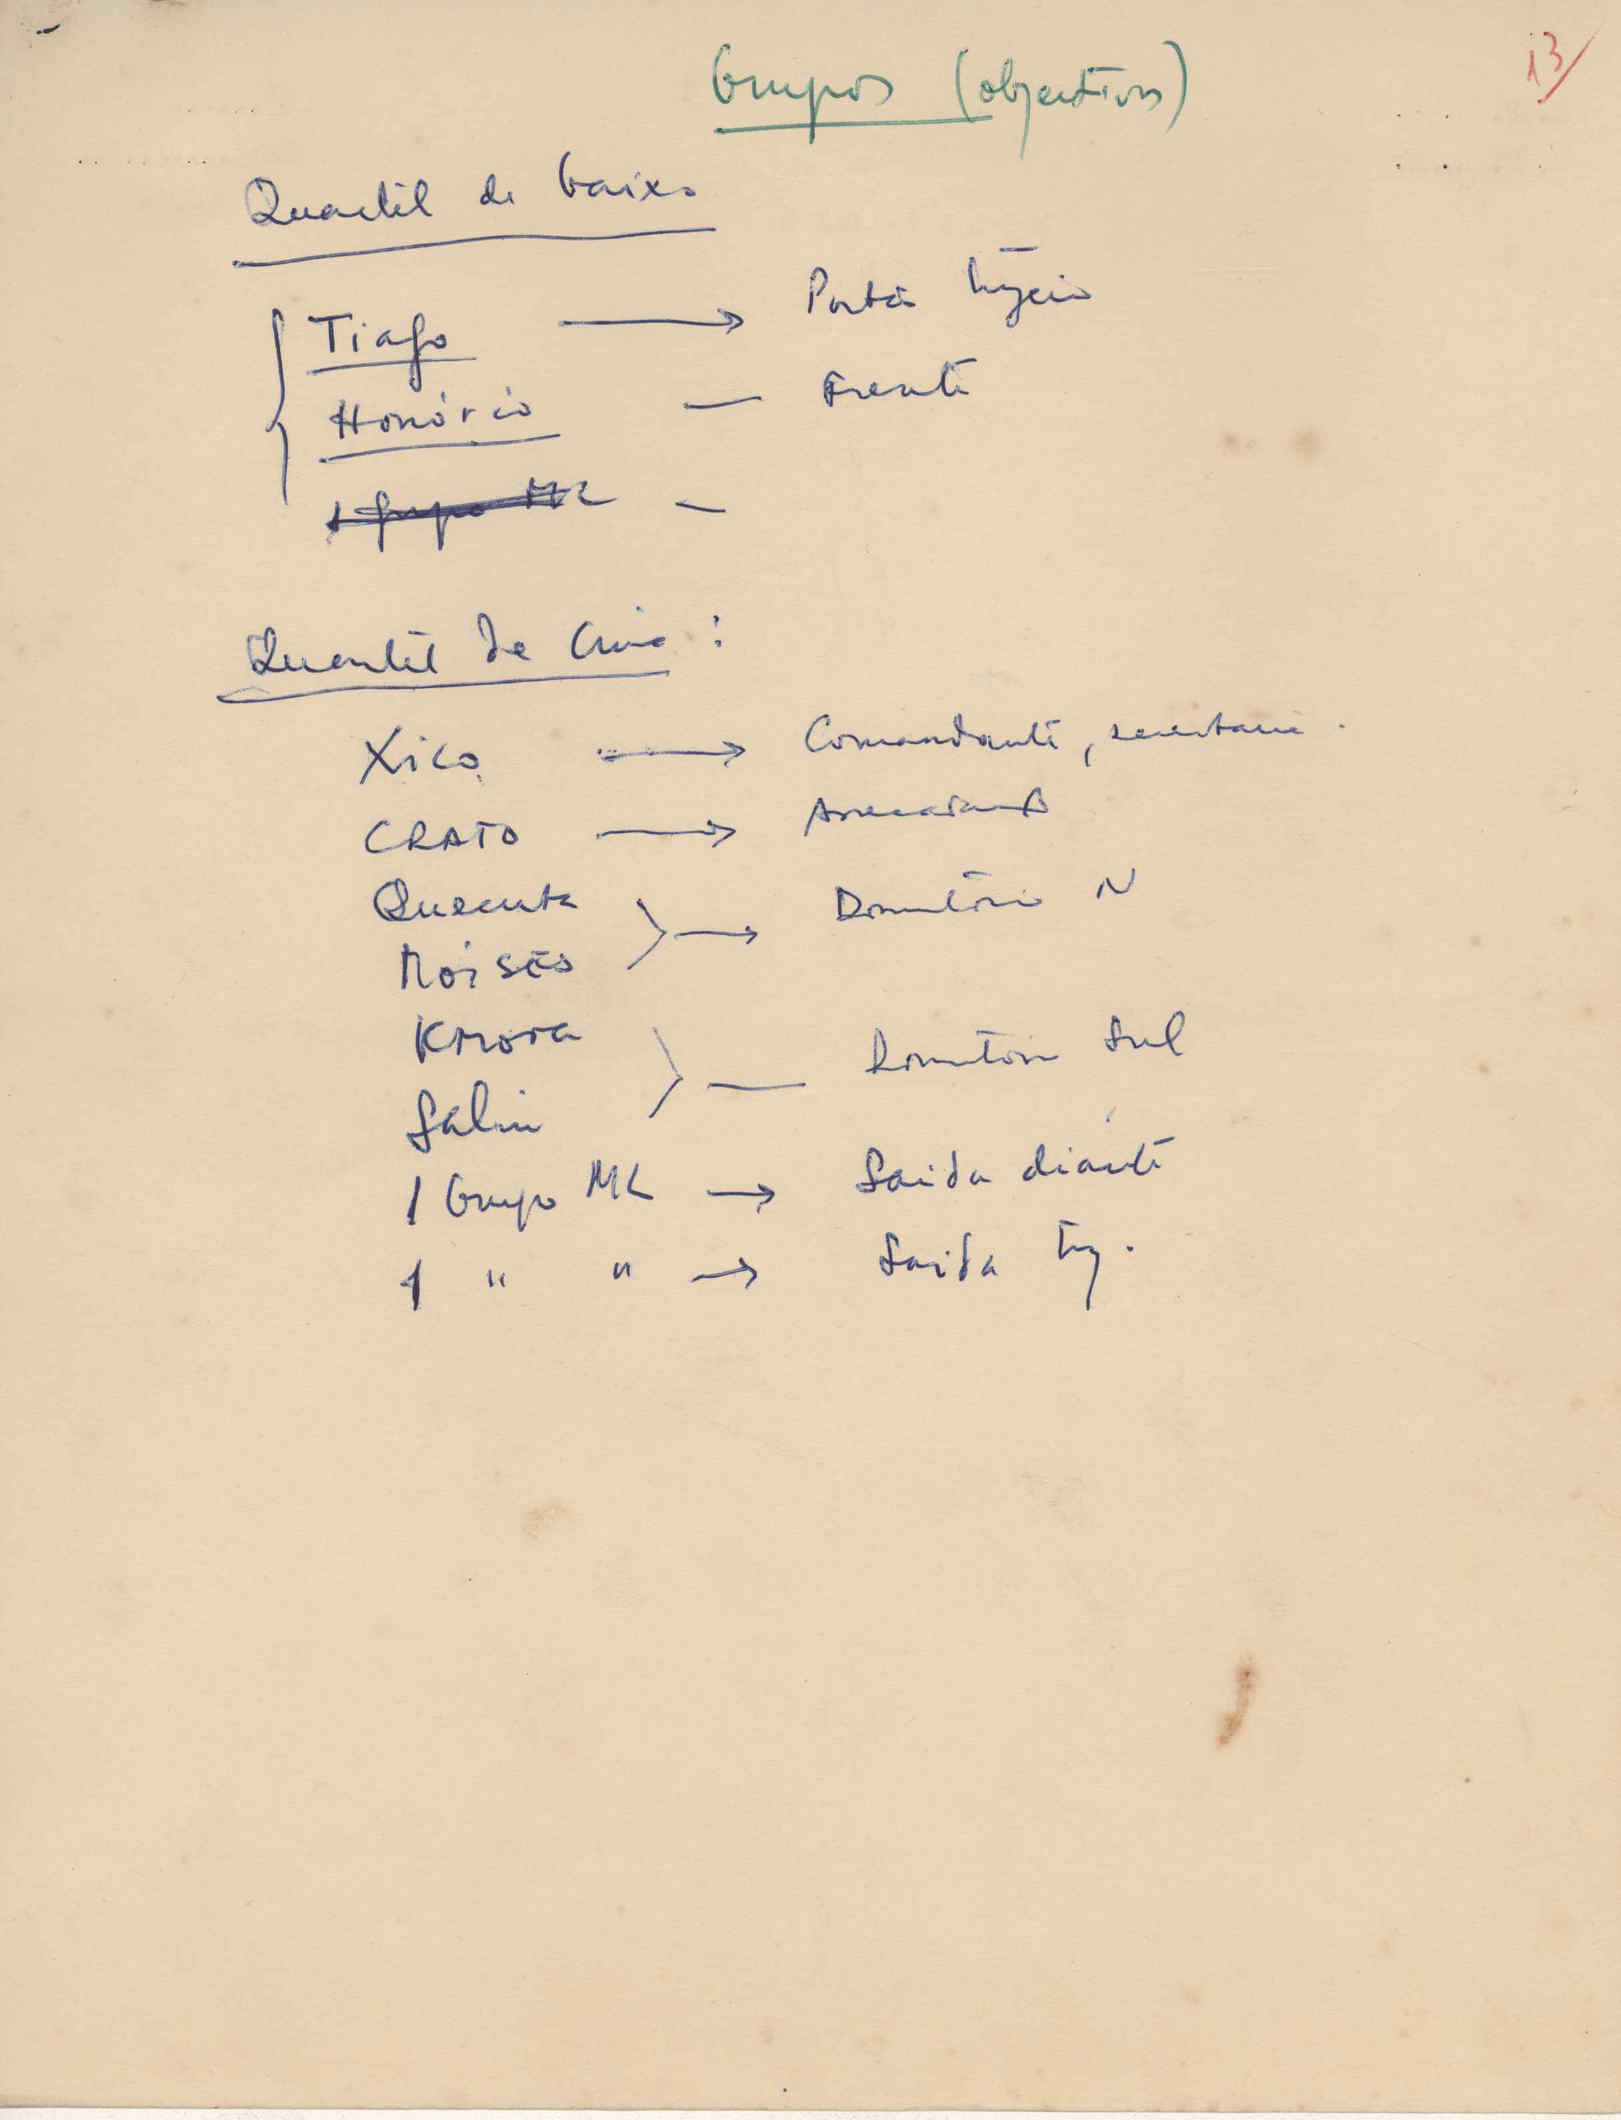 13/
Grupos (objectivos)
Quartel de baixo
Tiago → Porta
Honório — Frente
1 grupo ML —
Quartel de Cima :
Xico → Comandante, secretaria.
CRATO →
Quecuta
Moisés → Dormitório N
Kmora
Salin — Dormitório Sul
1 Grupo ML → Saida diante
1 " " → Saida trz.